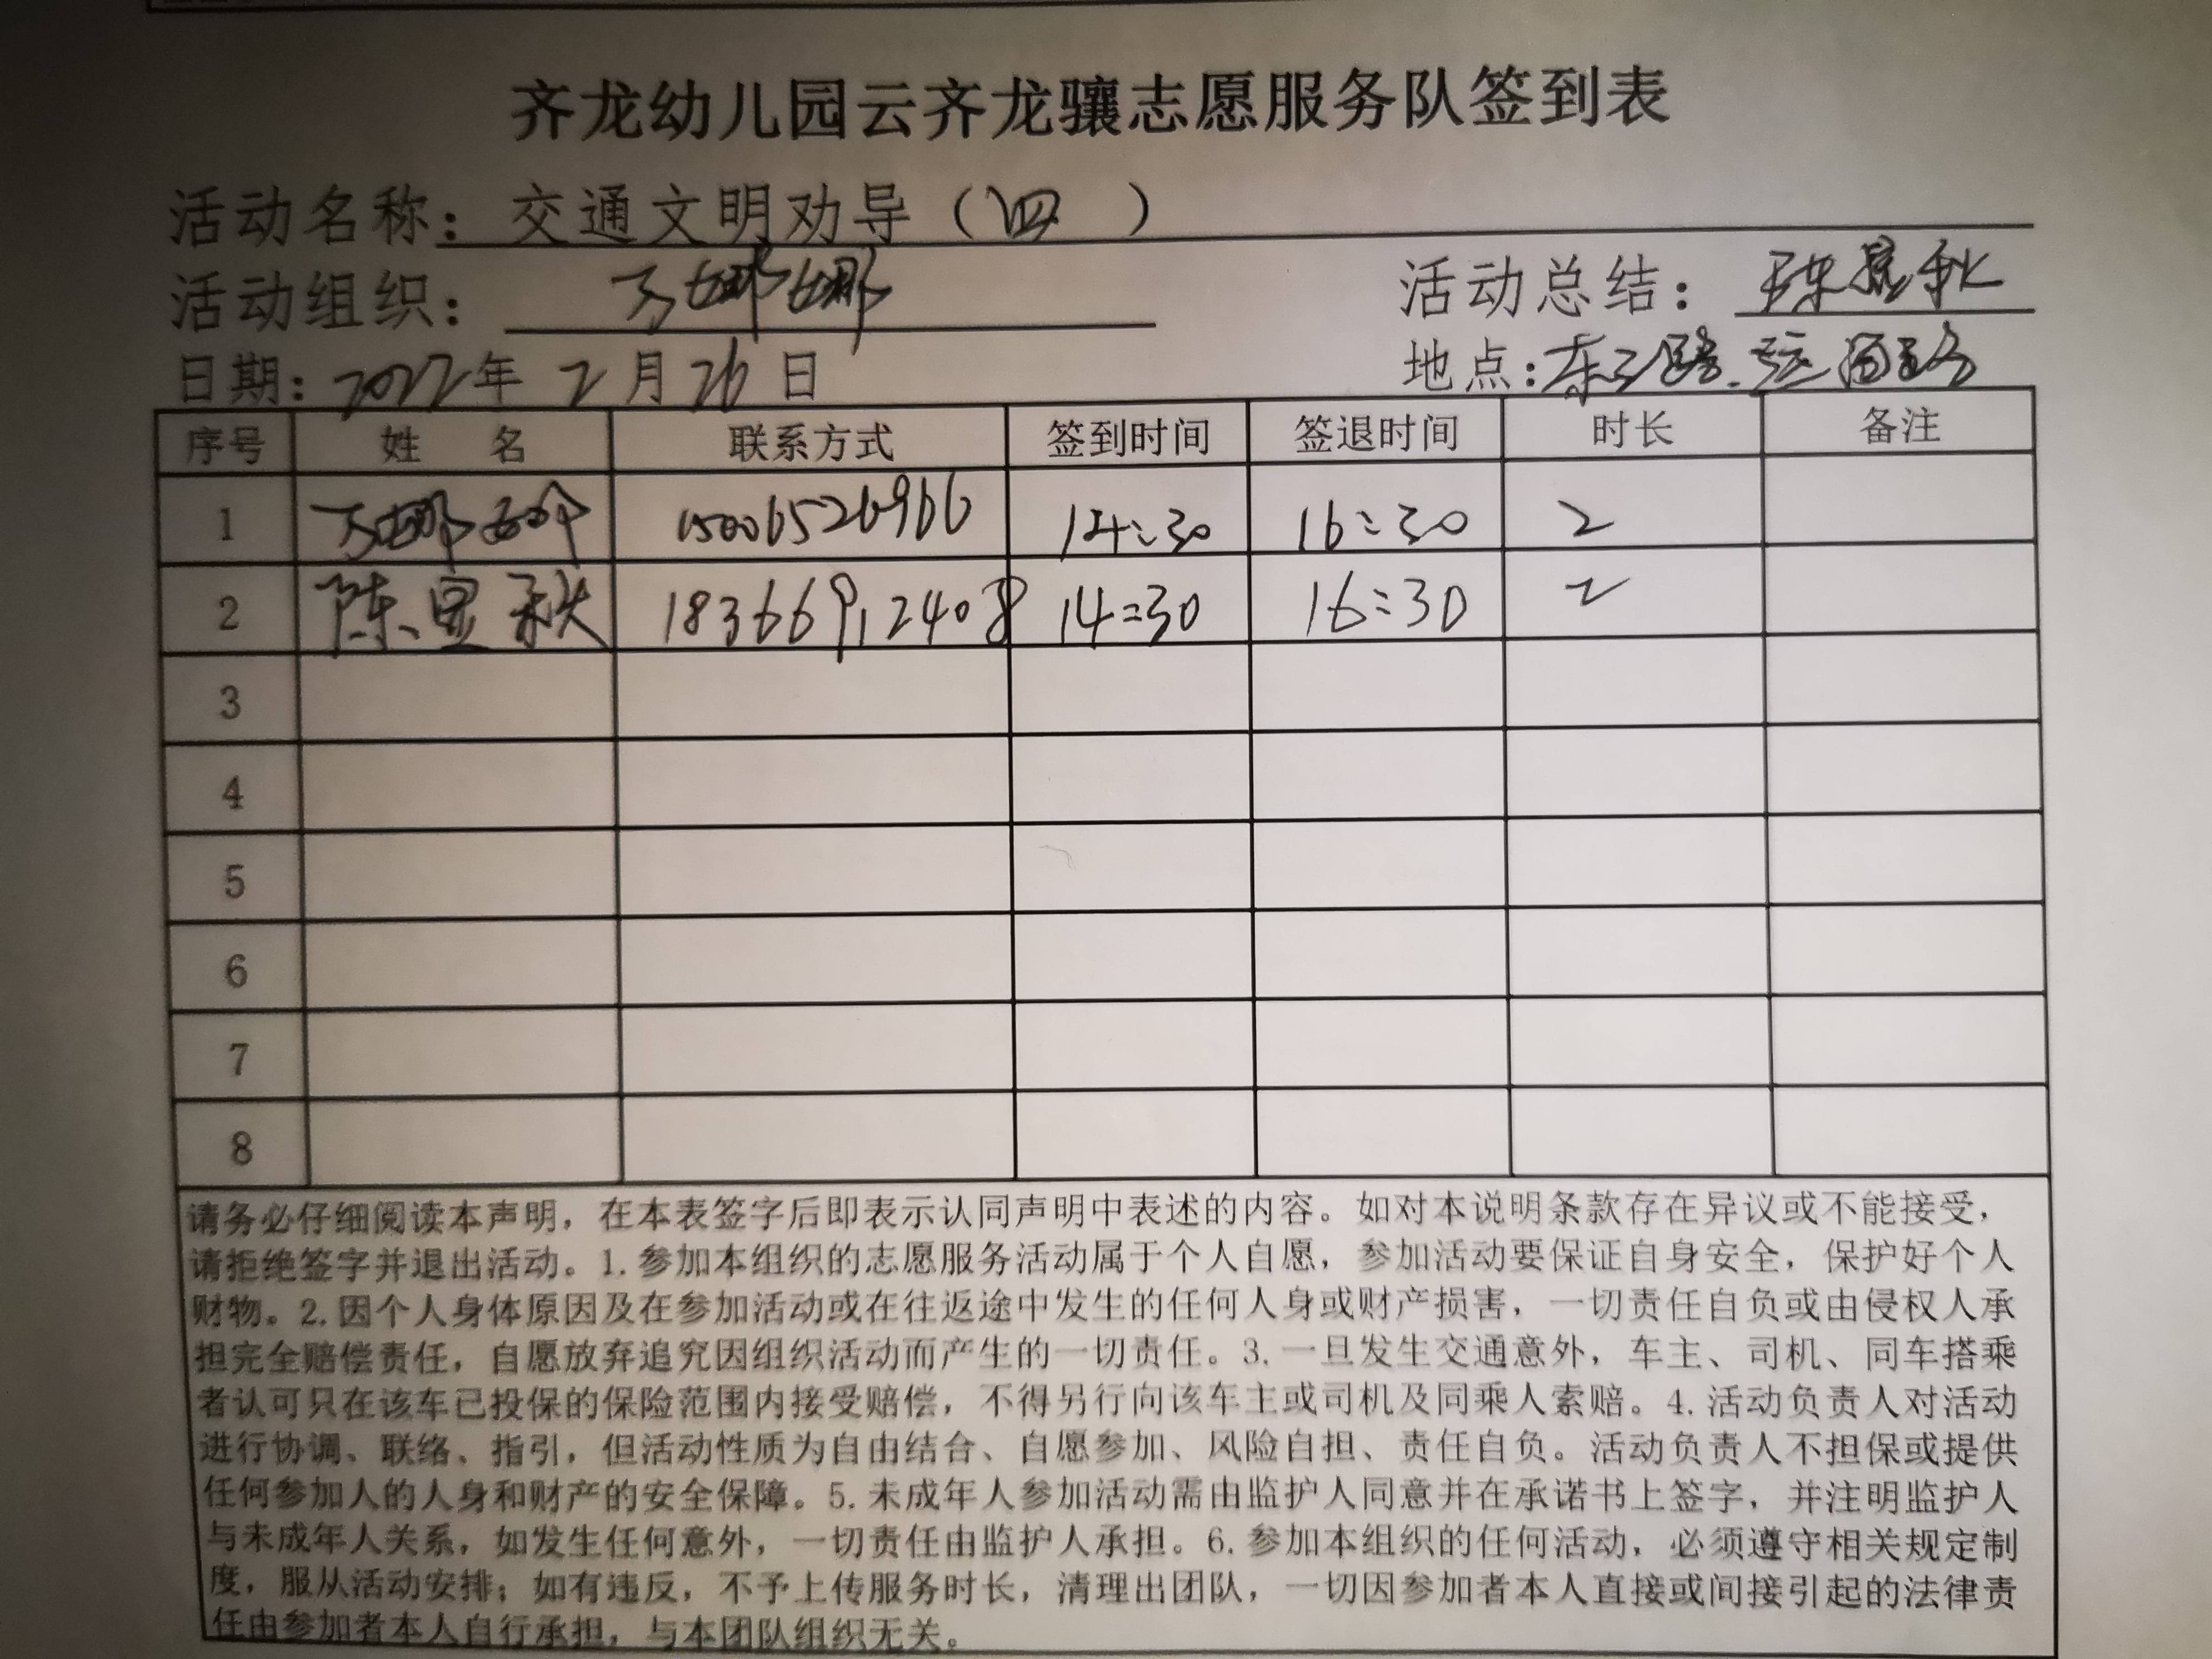 齐龙幼儿园云齐龙骧志愿服务队签到表
活动名称：交通文明劝导（四）
活动组织：万娜娜 活动总结：陈显秋
日期：2022年2月26日 地点：东三路
序号 姓名 联系方式 签到时间 签退时间 时长 备注
1 万娜娜 15006526966 14:30 16:30 2
2 陈显秋 18366912408 14:30 16:30 2
3
4
5
6
7
8
请务必仔细阅读本声明，在本表签字后即表示认同声明中表述的内容。如对本说明条款存在异议或不能接受，
请拒绝签字并退出活动。1.参加本组织的志愿服务活动属于个人自愿，参加活动要保证自身安全，保护好个人
财物。2.因个人身体原因及在参加活动或在往返途中发生的任何人身或财产损害，一切责任自负或由侵权人承
担完全赔偿责任，自愿放弃追究因组织活动而产生的一切责任。3.一旦发生交通意外，车主、司机、同车搭乘
者认可只在该车已投保的保险范围内接受赔偿，不得另行向该车主或司机及同乘人索赔。4.活动负责人对活动
进行协调、联络、指引，但活动性质为自由结合、自愿参加、风险自担、责任自负。活动负责人不担保或提供
任何参加人的人身和财产的安全保障。5.未成年人参加活动需由监护人同意并在承诺书上签字，并注明监护人
与未成年人关系，如发生任何意外，一切责任由监护人承担。6.参加本组织的任何活动，必须遵守相关规定制
度，服从活动安排；如有违反，不予上传服务时长，清理出团队，一切因参加者本人直接或间接引起的法律责
任由参加者本人自行承担，与本团队组织无关。